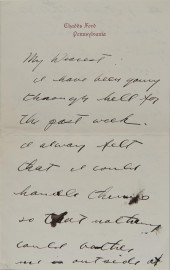 Chadds Ford
Pennsylvania
My dearest:
I have been going
through hell for
the past week.
I always felt
that I could
handle things
so that nothing
could bother
me - outside of